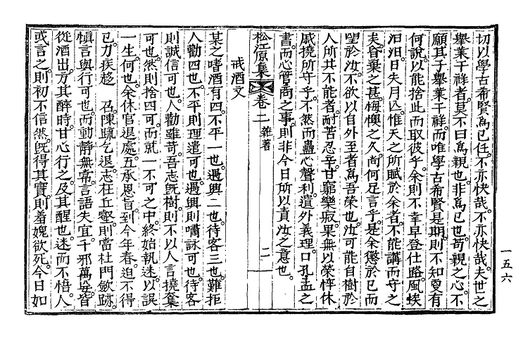 切以學古希賢爲己任不亦快哉不亦快哉夫世之
擧業干祥者莫不曰爲親也非爲己也苟親之心不
願其子擧業干祥而唯學古希賢是期則不知夏有
何說以能捨此而取彼乎余則不幸早登仕路風埃
汩汩日失月亡惟天之所賦於余者不能講而守之
夫昏棄之甚悔懊之久尚何足言乎是余懲於己而
望於汝不欲以自外至者爲吾榮也汝可能自樹於
人所其不能者耐苦忍辛甘窮樂寂果無以榮悴休
戚撓所守乎不然而蠱心聲利遺外義理口孔孟之
書而心管商之事則非今日所以責汝之意也
戒酒文
某之嗜酒有四不平一也遇興二也待客三也難拒
人勸四也不平則理遣可也遇興則嘯詠可也待客
則誠信可也人勸雖苛吾志旣樹則不以人言撓奪
可也然則捨四可而就一不可之中終始執迷以誤
一生何也余休官退處五承恩旨到今年春迫不得
已力疾趨 召陳疏乞退志在丘壑則當杜門斂跡
愼言與行可也而動靜無常言語失宜千邪萬妄皆
從酒出方其醉時甘心行之及其醒也迷而不悟人
或言之則初不信然旣得其實則羞媿欲死今日如
松江原集 卷二 雜著 二
一五六